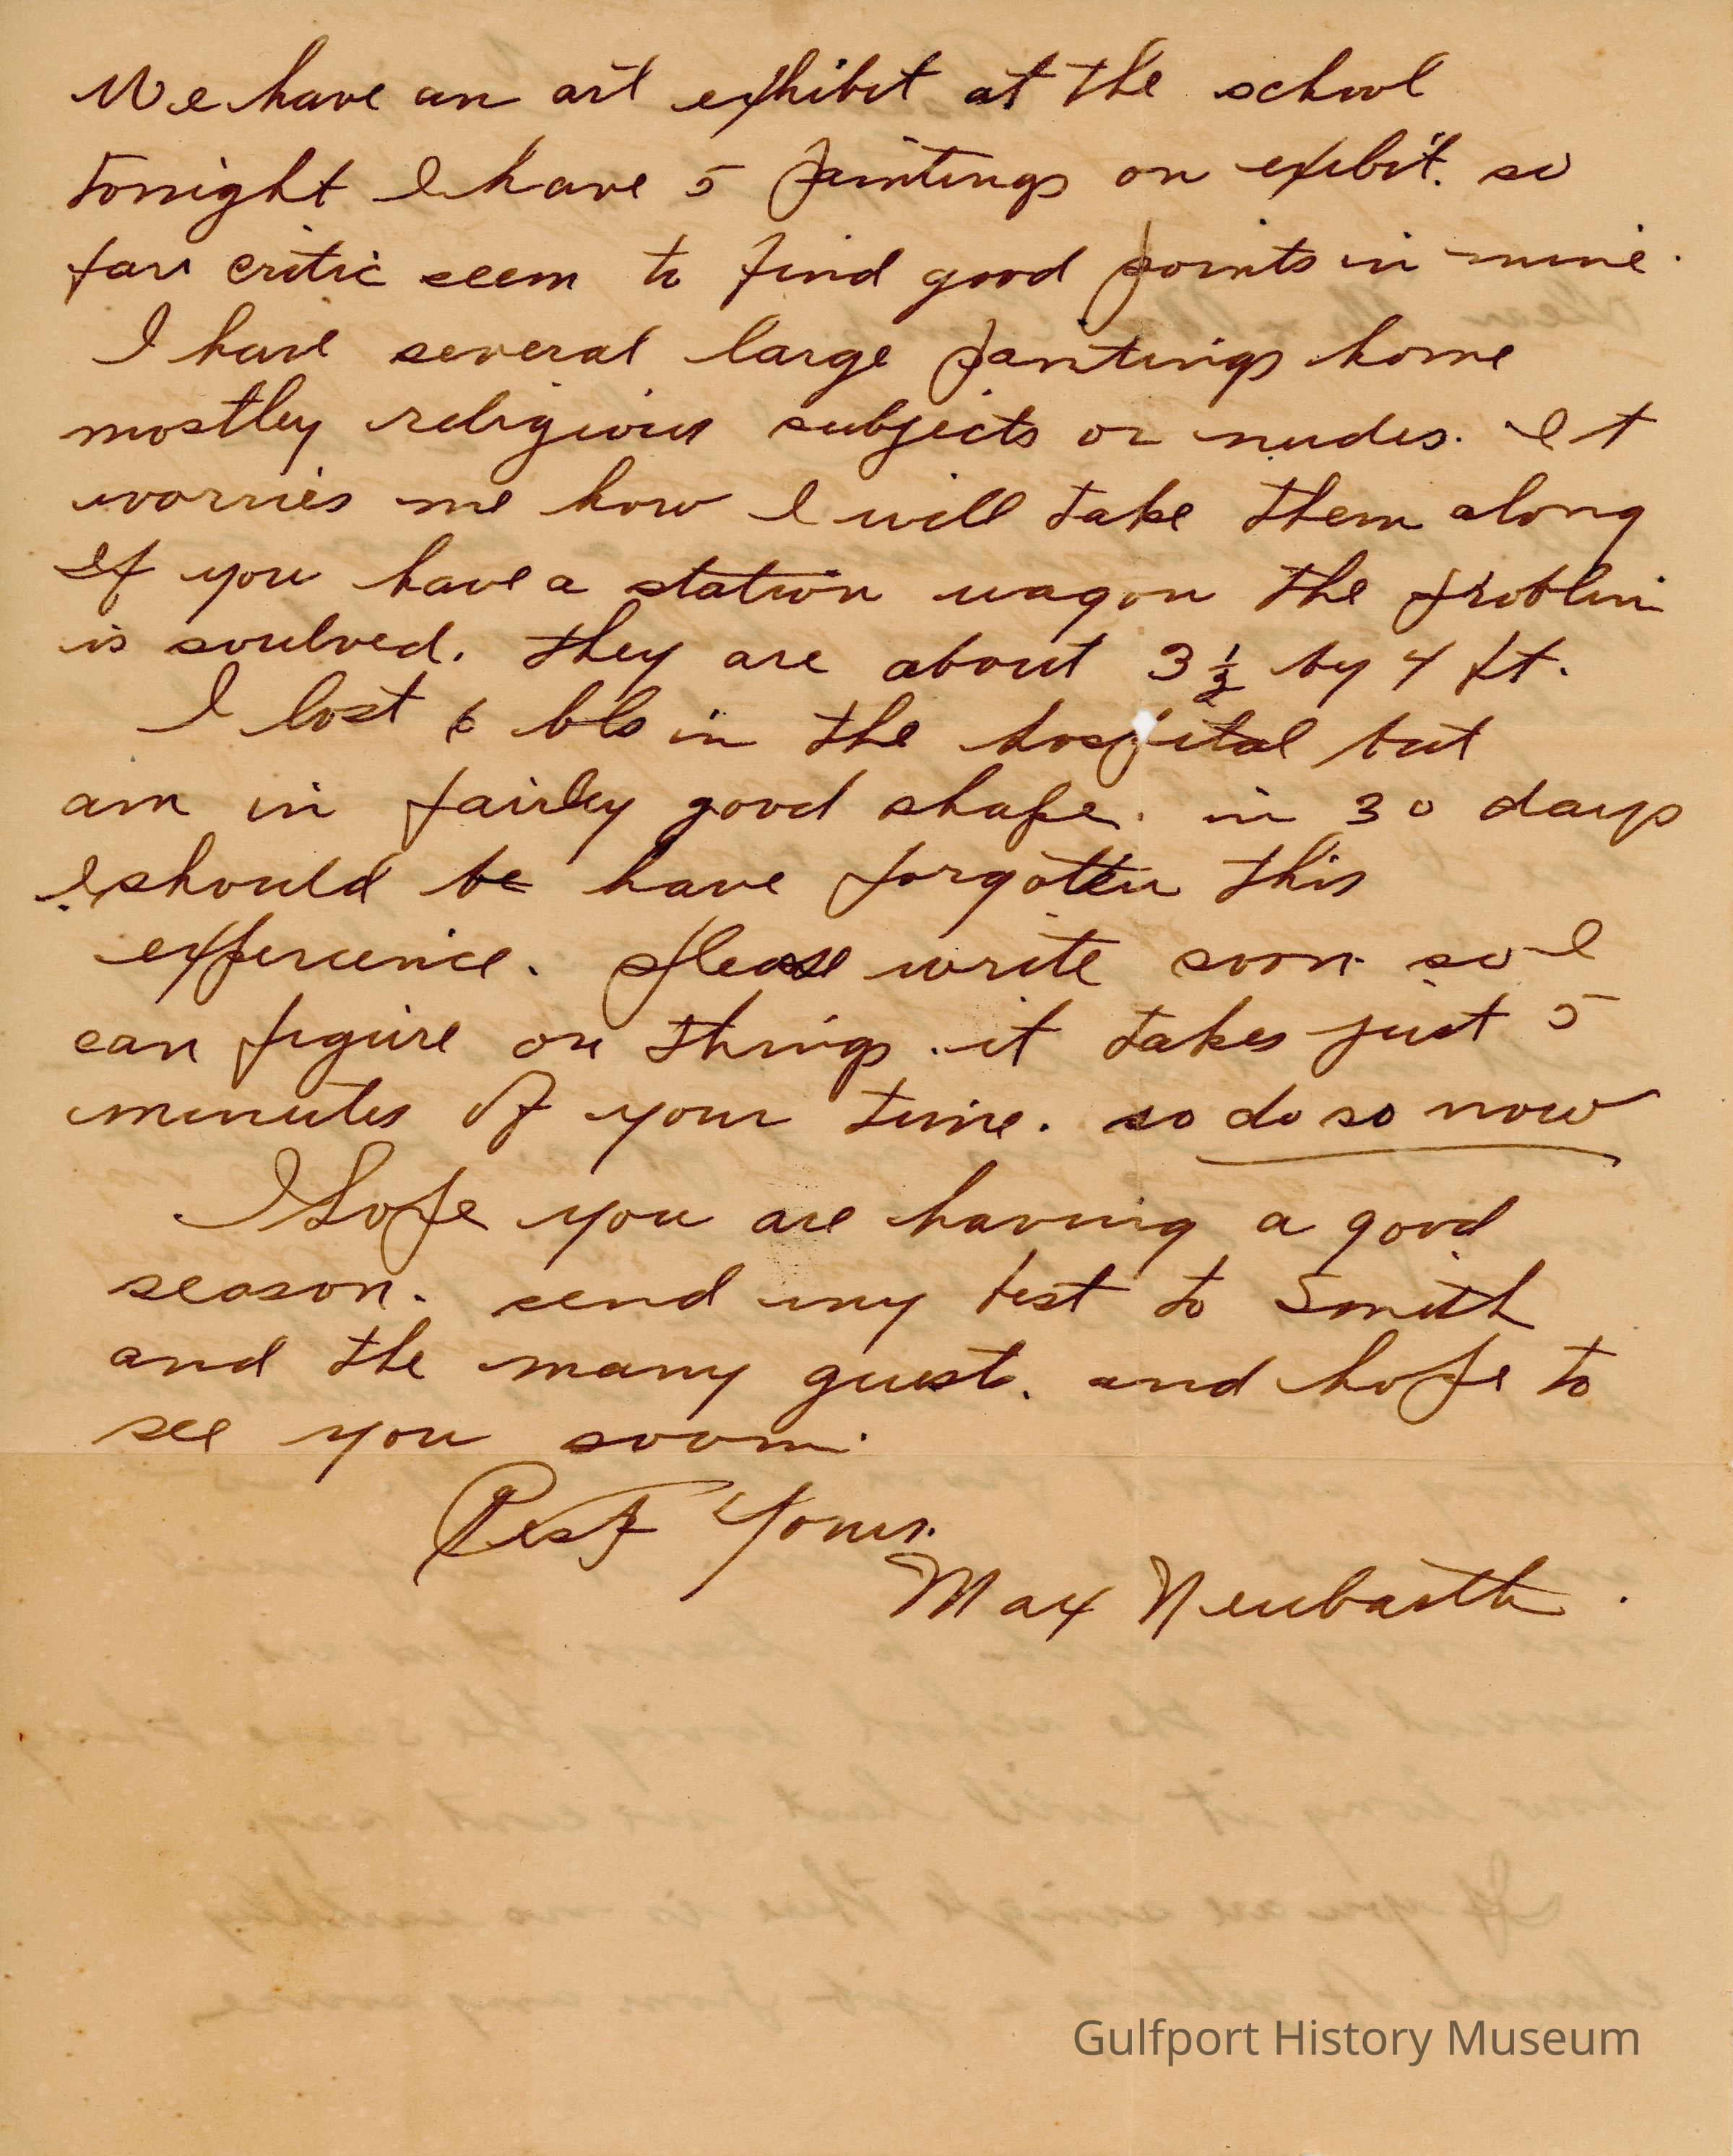 We have an art exhibit at the school
tonight I have 5 paintings on exibit. so
far critic seem to find good points in mine.
I have several large paintings home
mostley religious subjects or nudes. It
worries me how I will take them along
If you have a station wagon the problem
is soulved. they are about 3½ by 4 ft.
I lost 6 lbs in the hospital but
am in fairley good shape. in 30 days
I should be have forgotten this
experience. please write soon so I
can figure on things. it takes just 5
minutes of your time. so do so now
I hope you are having a good
season. send my best to Smith
and the many guest. and hope to
see you soon.
Best Yours.
Max Neubarth.
Gulfport History Museum